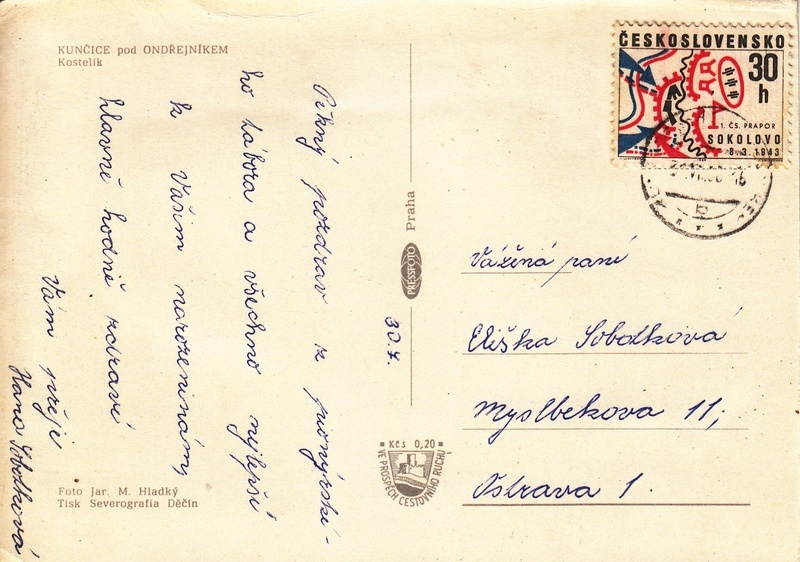 KUNČICE pod ONDŘEJNÍKEM
Kostelík
Pěkný pozdrav z pionýrské-
ho tábora a všechno nejlepší
k Vašim narozeninám,
hlavně hodně zdraví
Vám přeje
Hana Sobotková
30.7.
Foto Jar. M. Hladký
Tisk Severografia Děčín
PRESSFOTO Praha
Kčs 0,20
VE PROSPĚCH CESTOVNÍHO RUCHU
ČESKOSLOVENSKO
30 h
1. ČS. PRAPOR
SOKOLOVO
8.3.1943
b
Vážená paní
Eliška Sobotková
Myslbekova 11;
Ostrava 1.